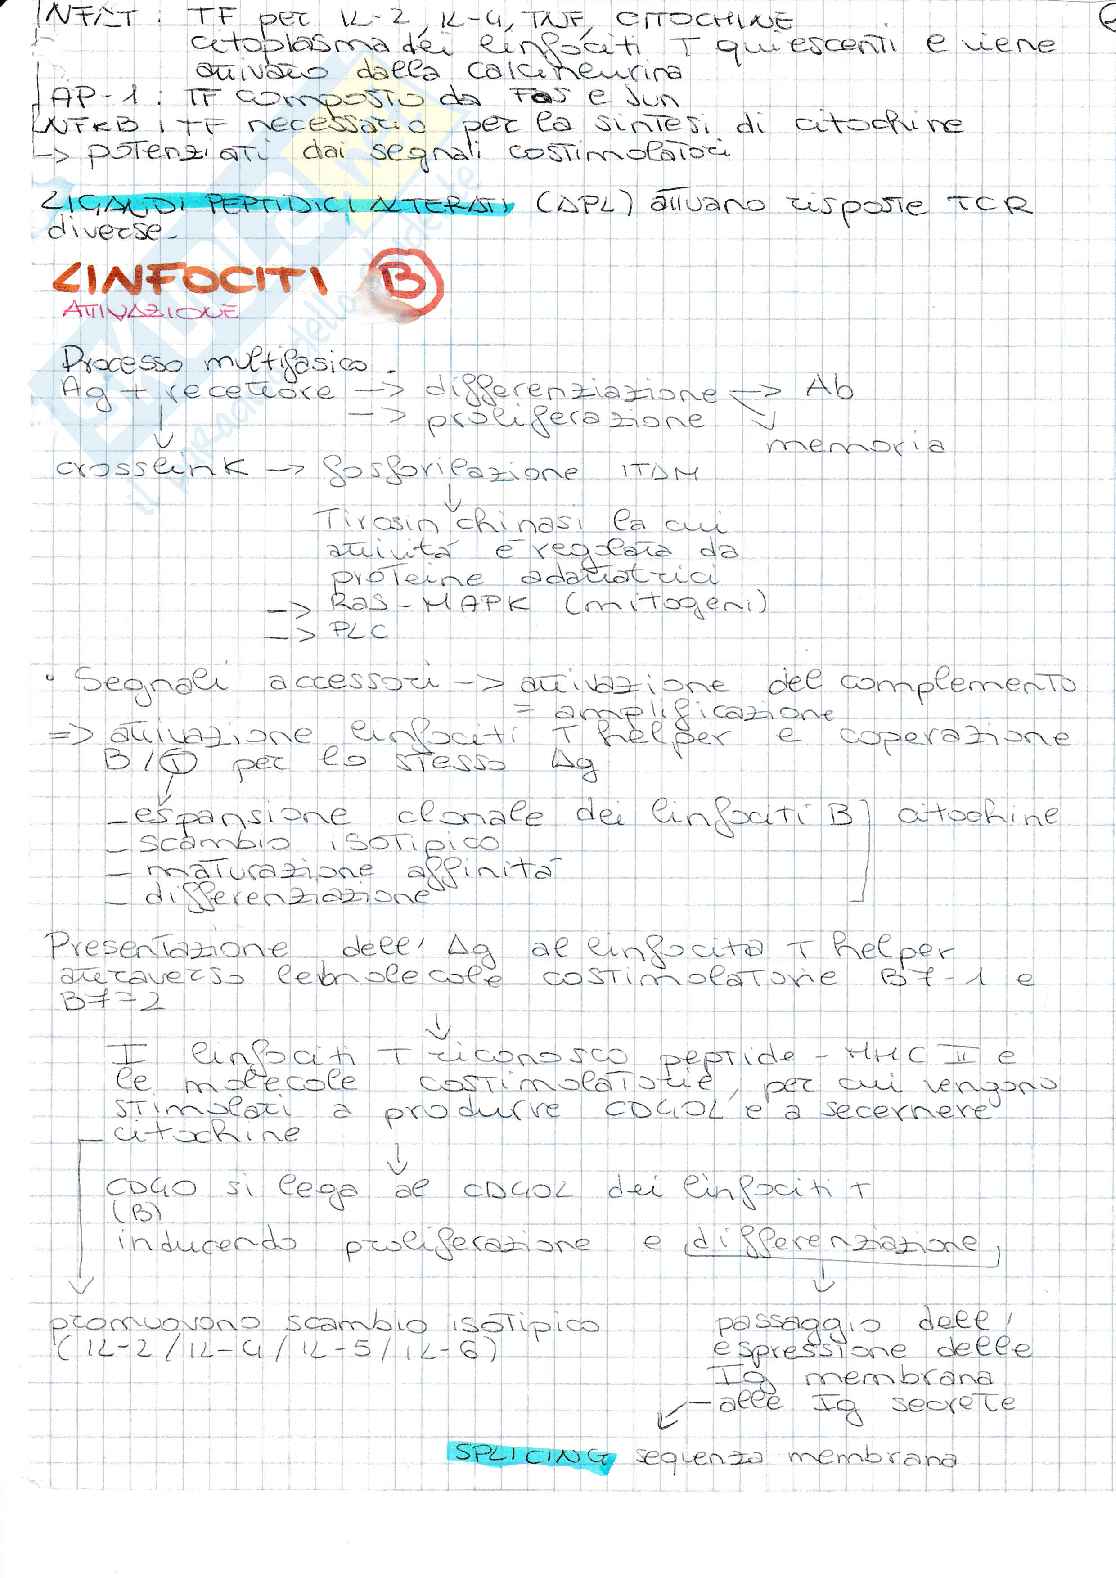 NFAT : TF per IL-2, IL-4, TNF, CITOCHINE
citoplasma dei linfociti T quiescenti e viene
attivato dalla calcineurina
AP-1 : TF composto da Fos e Jun
NFKB : TF necessario per la sintesi di citochine
-> potenziati dai segnali costimolatori
LIGANDI PEPTIDICI ALTERATI (APL) attivano risposte TCR
diverse.
LINFOCITI B
ATTIVAZIONE
Processo multifasico.
Ag + recettore -> differenziazione -> Ab
-> proliferazione
memoria
crosslink -> fosforilazione ITAM
Tirosin chinasi la cui
attività è regolata da
proteine adattatrici
-> Ras-MAPK (mitogeni)
-> PLC
• Segnali accessori -> attivazione del complemento
= amplificazione
=> attivazione linfociti T helper e coperazione
B/T per lo stesso Ag
- espansione clonale dei linfociti B] citochine
- scambio isotipico
- maturazione affinità
- differenziazione
Presentazione dell' Ag al linfocita T helper
attraverso le molecole costimolatorie B7-1 e
B7-2
I linfociti T riconosco peptide - MHC II e
le molecole costimolatorie, per cui vengono
stimolati a produrre CD40L e a secernere
citochine
CD40 si lega al CD40L dei linfociti T
(B)
inducendo proliferazione e differenziazione,
promuovono scambio isotipico
(IL-2/IL-4/IL-5/IL-6)
passaggio dell'
espressione delle
Ig membrana
alle Ig secrete
SPLICING sequenza membrana